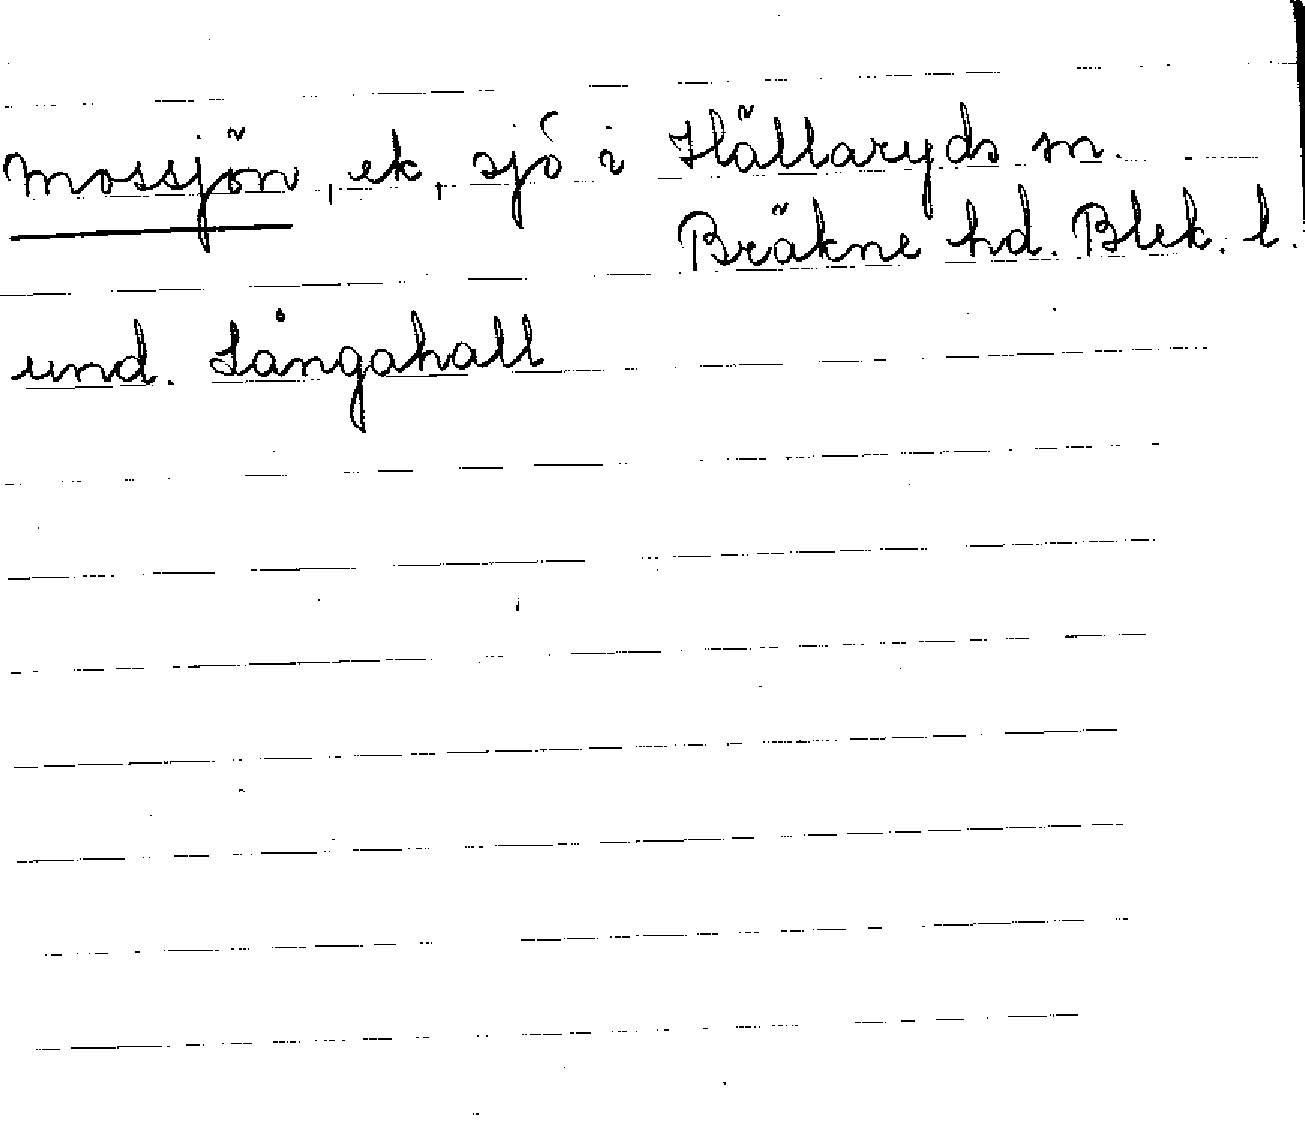 Mossjön, ek, sjö i Hällaryds sn.
Bräkne hd. Blek. l.
und. Långahall